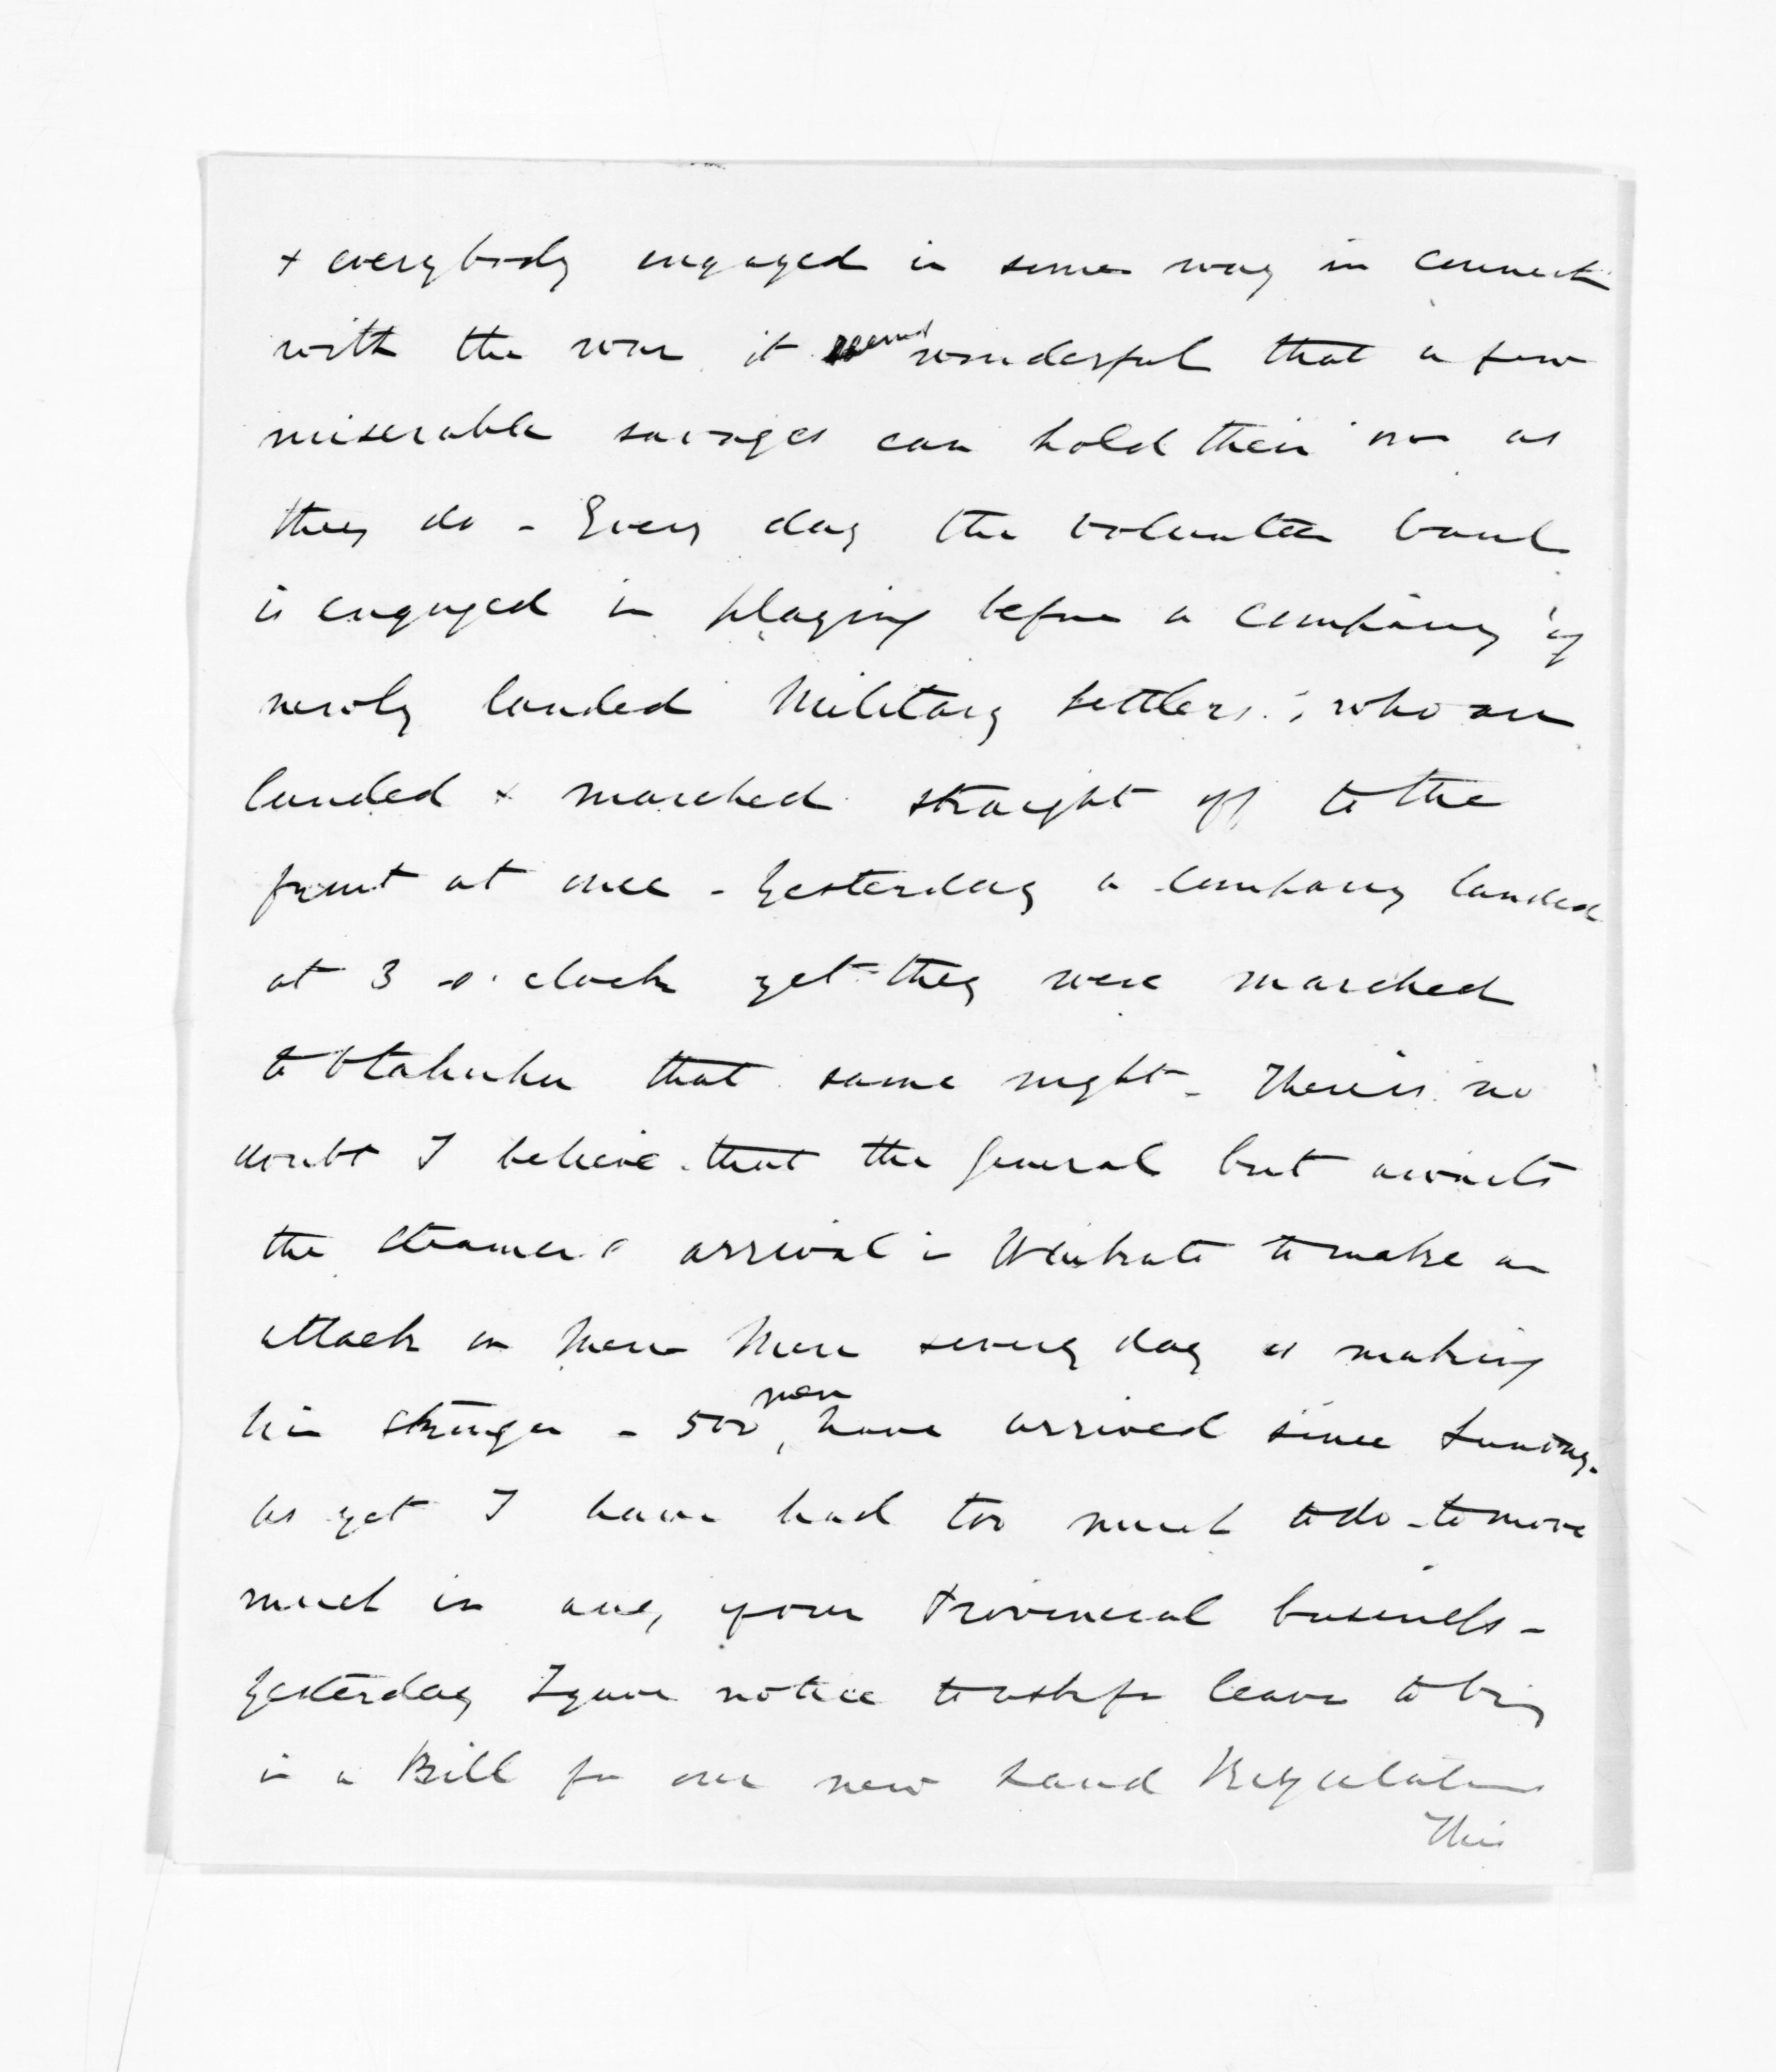 & everybody engaged in some way in connect
with the war it seemed wonderful that a few
miserable savages can hold their own as
they do - Every day the volunteer band
is engaged in playing before a company of
newly landed Military settlers: who are
landed & marched straight off to the
front at once - Yesterday a company landed
at 3 o'clock yet they were marched
to Otahuhu that same night - There is no
doubt I believe that the General but awaits
the steamer's arrival in Waikato to make an
attack on Mere Mere every day is making
him stronger - 500 men have arrived since Sunday.
As yet I have had too much to do to move
much in any your Provincial business -
Yesterday I gave notice to ask for leave to bring
in a Bill for our new Land Regulations
This